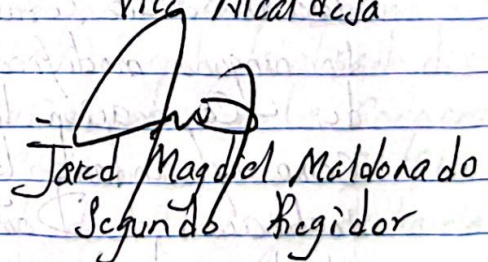 Vice Alcaldesa
Jared Magdiel Maldonado
Segundo Regidor